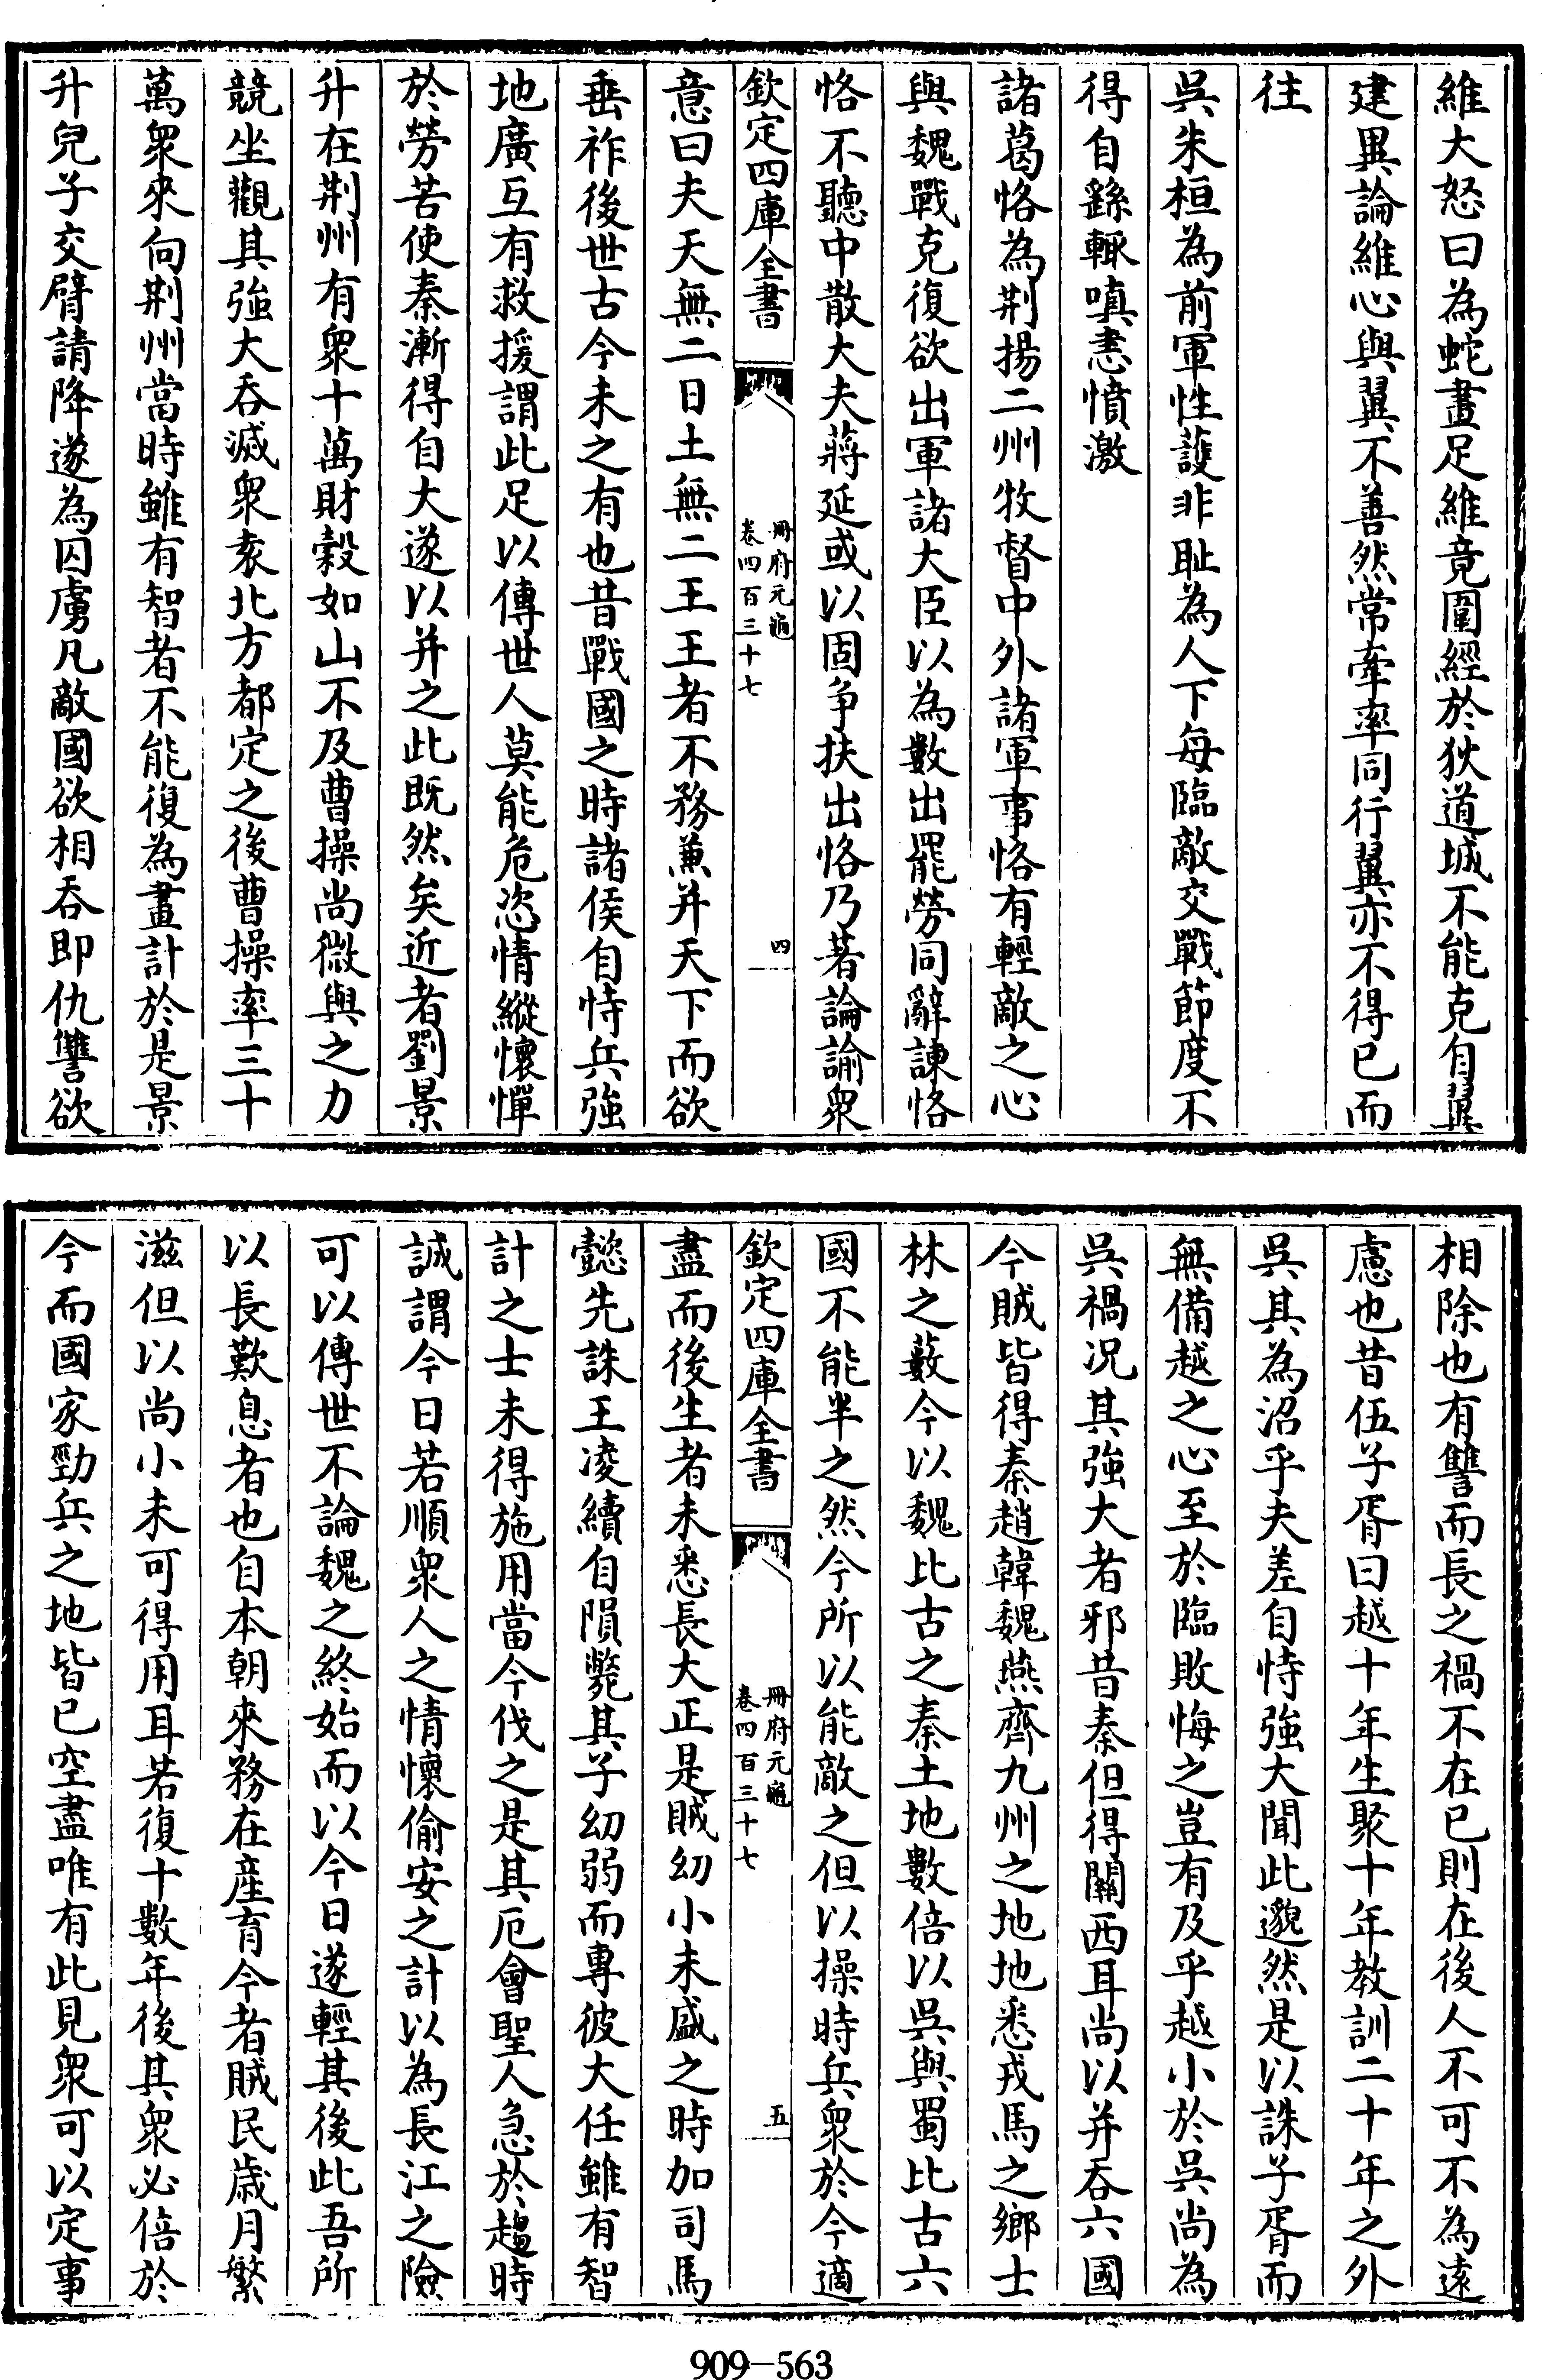 維大怒曰為蛇畫足維竟圍經於狄道城不能克自翼
建異論維心與翼不善然常牽率同行翼亦不得已而
往
吳朱桓為前軍性䕶非耻為人下每臨敵交戰節度不
得自繇輙嗔恚憤激
諸葛恪為荆揚二州牧督中外諸軍事恪有輕敵之心
與魏戰克復欲出軍諸大臣以為數出罷勞同辭諫恪
恪不聽中散大夫蔣延或以固争扶出恪乃著論諭衆
欽定四庫全書
冊府元龜
卷四百三十七
四
意曰夫天無二日土無二王王者不務兼并天下而欲
垂祚後世古今未之有也昔戰國之時諸侯自恃兵強
地廣互有救援謂此足以傳世人莫能危恣情縱懷憚
於勞苦使秦漸得自大遂以并之此既然矣近者劉景
升在荆州有衆十萬財穀如山不及曹操尚微與之力
競坐觀其強大吞滅衆袁北方都定之後曹操率三十
萬衆來向荆州當時雖有智者不能復為畫計於是景
升兒子交臂請降遂為囚虜凡敵國欲相吞即仇讐欲
相除也有讐而長之禍不在已則在後人不可不為遠
慮也昔伍子胥曰越十年生聚十年教訓二十年之外
吳其為沼乎夫差自恃強大聞此邈然是以誅子胥而
無備越之心至於臨敗悔之豈有及乎越小於吳尚為
吳禍况其強大者邪昔秦但得關西耳尚以并吞六國
今賊皆得秦趙韓魏燕齊九州之地地悉戎馬之鄉士
林之藪今以魏比古之秦土地數倍以吳與蜀比古六
國不能半之然今所以能敵之但以操時兵衆於今適
欽定四庫全書
冊府元龜
卷四百三十七
五
盡而後生者未悉長大正是賊幼小未盛之時加司馬
懿先誅王凌續自隕斃其子幼弱而專彼大任雖有智
計之士未得施用當今伐之是其厄會聖人急於趨時
誠謂今日若順衆人之情懷偷安之計以為長江之險
可以傳世不論魏之終始而以今日遂輕其後此吾所
以長歎息者也自本朝來務在產育今者賊民歲月繁
滋但以尚小未可得用耳若復十數年後其衆必倍於
今而國家勁兵之地皆已空盡唯有此見衆可以定事
909-563